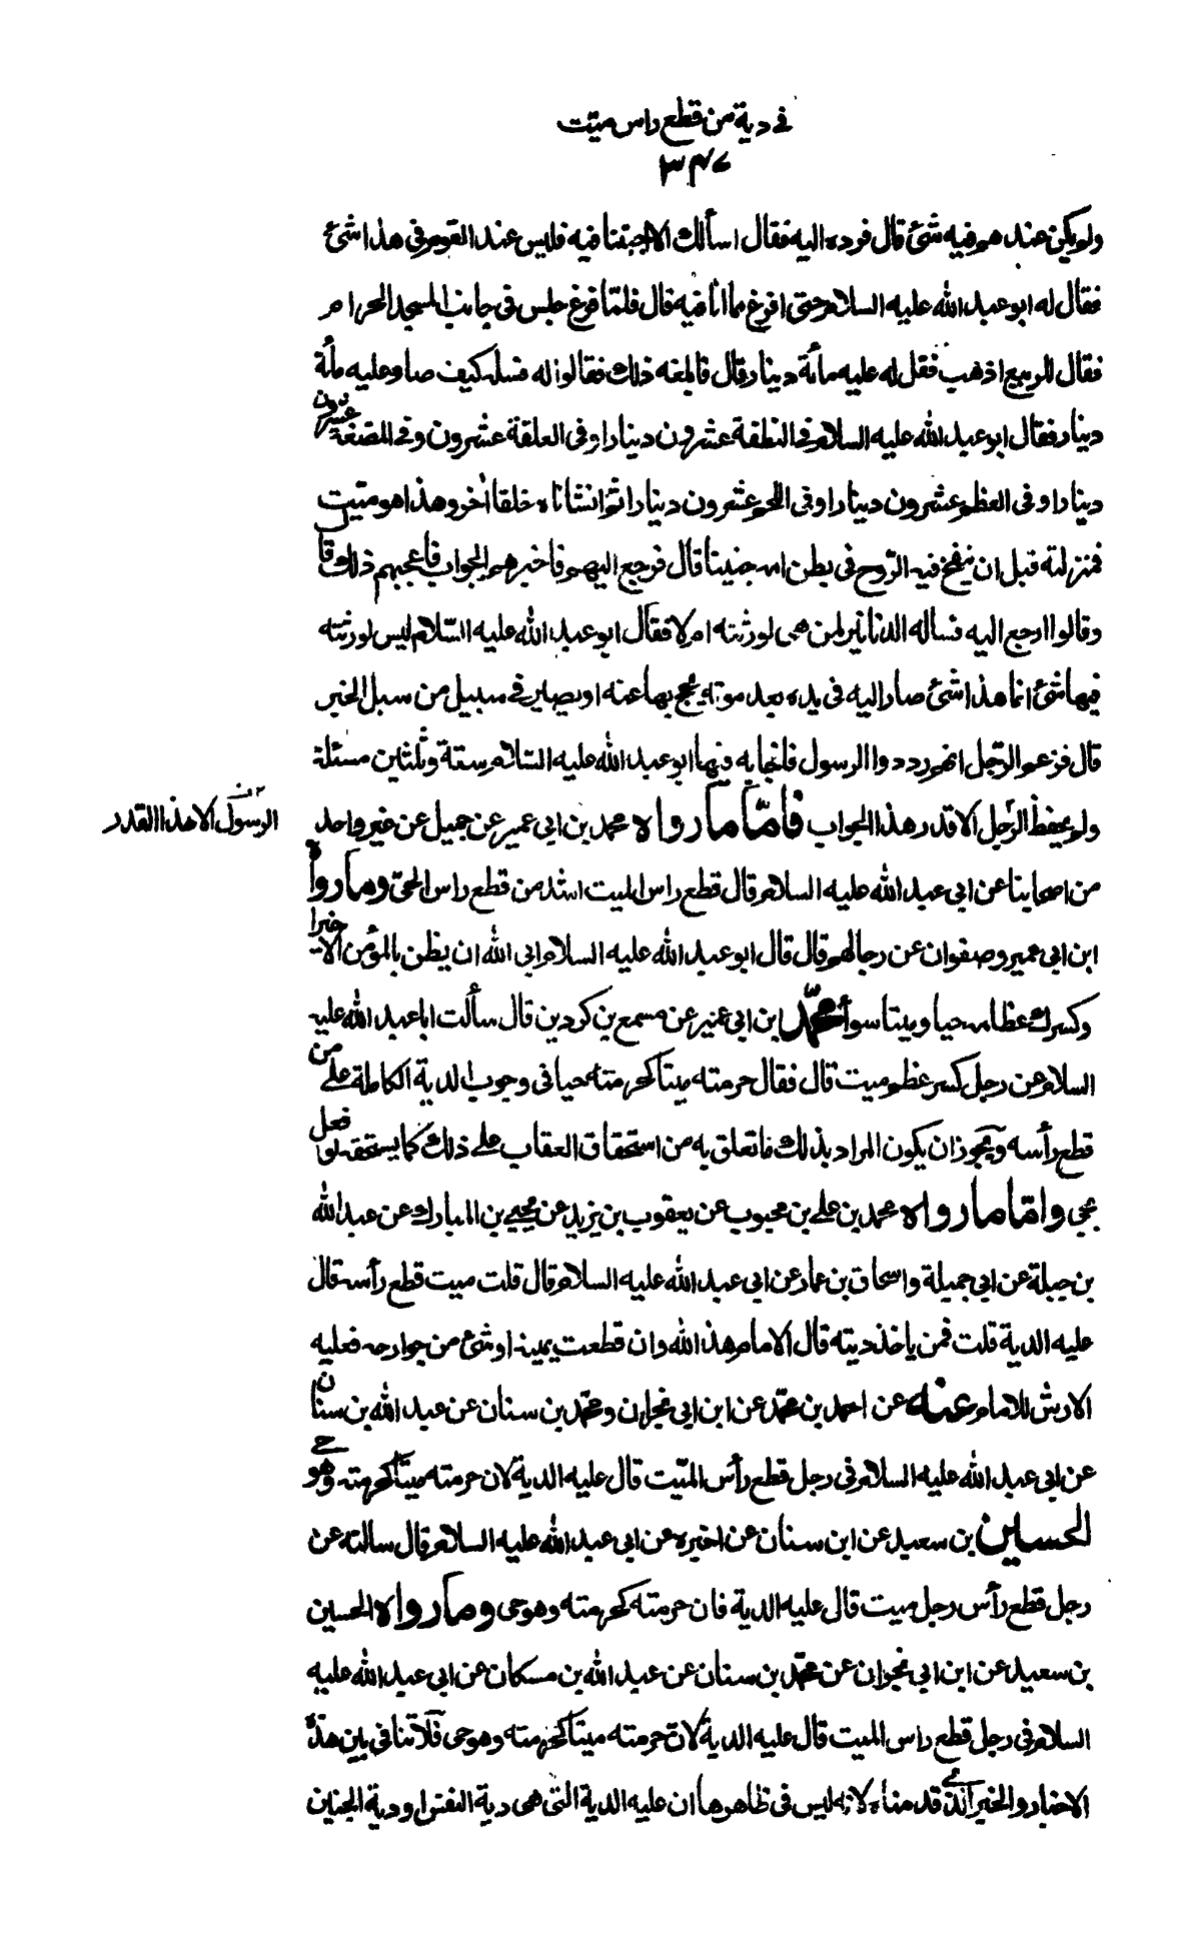 في دية من قطع راس ميّت
٣٤٧
ولم يكن عندهم فيه شئ قال فرده اليه فقال اسألك الا اجبتنا فيه فليس عند القوم في هذا شئ
فقال له ابو عبد الله عليه السلام حتى افرغ مما انا فيه قال فلمّا فرغ جلس في جانب المسجد الحرام
فقال للربيع اذهب فقل له عليه مأئة دينار قال فابلغه ذلك فقالوا له فسله كيف صار عليه مأئة
دينار فقال ابو عبد الله عليه السلام في النطفة عشرون دينارا وفي العلقة عشرون وفي المضغة عشرون
دينارا وفي العظم عشرون دينارا وفي اللحم عشرون دينارا ثم انشاناه خلقا اٰخر وهذا هو ميّت
بمنزلته قبل ان ينفخ فيه الرّوح في بطن امه جنينا قال فرجع اليهم فاخبرهم بالجواب فاعجبهم ذلك وقا
وقالوا ارجع اليه فساله الدنانير لمن هي لورثته ام لا فقال ابو عبد الله عليه السّلام ليس لورثته
فيها شئ انما هذا شئ صار اليه في بدنه بعد موته يحج بها عنه او يصير في سبيل من سبل الخير
قال فزعم الرّجل انهم ردوا الرسول فاجابه فيها ابو عبد الله عليه السّلام ستة وثلثين مسئلة
ولم يحفظ الرّجل الا قدر هذا الجواب فامّا ما رواه محمد بن ابي عمير عن جميل عن غير واحد
الرسول الا هذا القدر
من اصحابنا عن ابي عبد الله عليه السلام قال قطع راس الميت اشد من قطع راس الحيّ وما رواه
ابن ابي عمير وصفوان عن رجالهم قال قال ابو عبد الله عليه السلام ابى الله ان يظن بالمؤمن الا خيرا
وكسرك عظامه حيا وميتا سوأ محمّد ابن ابي عمير عن مسمع بن كردين قال سألت ابا عبد الله عليه
السلام عن رجل كسر عظم ميت قال فقال حرمته ميتا كحرمته حيا في وجوب الدية الكاملة على من
قطع رأسه ويجوز ان يكون المراد بذلك ما تعلق به من استحقاق العقاب على ذلك كما يستحقه لو فعل
بحي وامّا ما رواه محمد بن علي بن محبوب عن يعقوب بن يزيد عن يحيى بن المبارك عن عبد الله
بن جبلة عن ابي جميلة واسحاق بن عمار عن ابي عبد الله عليه السلام قال قلت ميت قطع رأسه قال
عليه الدية قلت فمن ياخذ ديته قال الامام هذا لله وان قطعت يمينه او شئ من جوارحه فعليه
الارش للامام عنه عن احمد بن محمّد عن ابن ابي نجران ومحمّد بن سنان عن عبد الله بن سنان
عن ابي عبد الله عليه السلام في رجل قطع رأس الميّت قال عليه الدية لان حرمته ميتا كحرمته وهو حي
الحسين بن سعيد عن ابن سنان عن اخبره عن ابي عبد الله عليه السلام قال سالته عن
رجل قطع رأس رجل ميت قال عليه الدية فان حرمته كحرمته وهو حي وما رواه الحسين
بن سعيد عن ابن ابي نجران عن محمّد بن سنان عن عبد الله بن مسكان عن ابي عبد الله عليه
السلام في رجل قطع راس الميت قال عليه الدية لان حرمته ميتا كحرمته وهو حي فلا تنافي بين هذه
الاخبار والخبر الذي قدمناه لانه ليس في ظاهرها ان عليه الدية التي هي دية النفس او دية الجنين